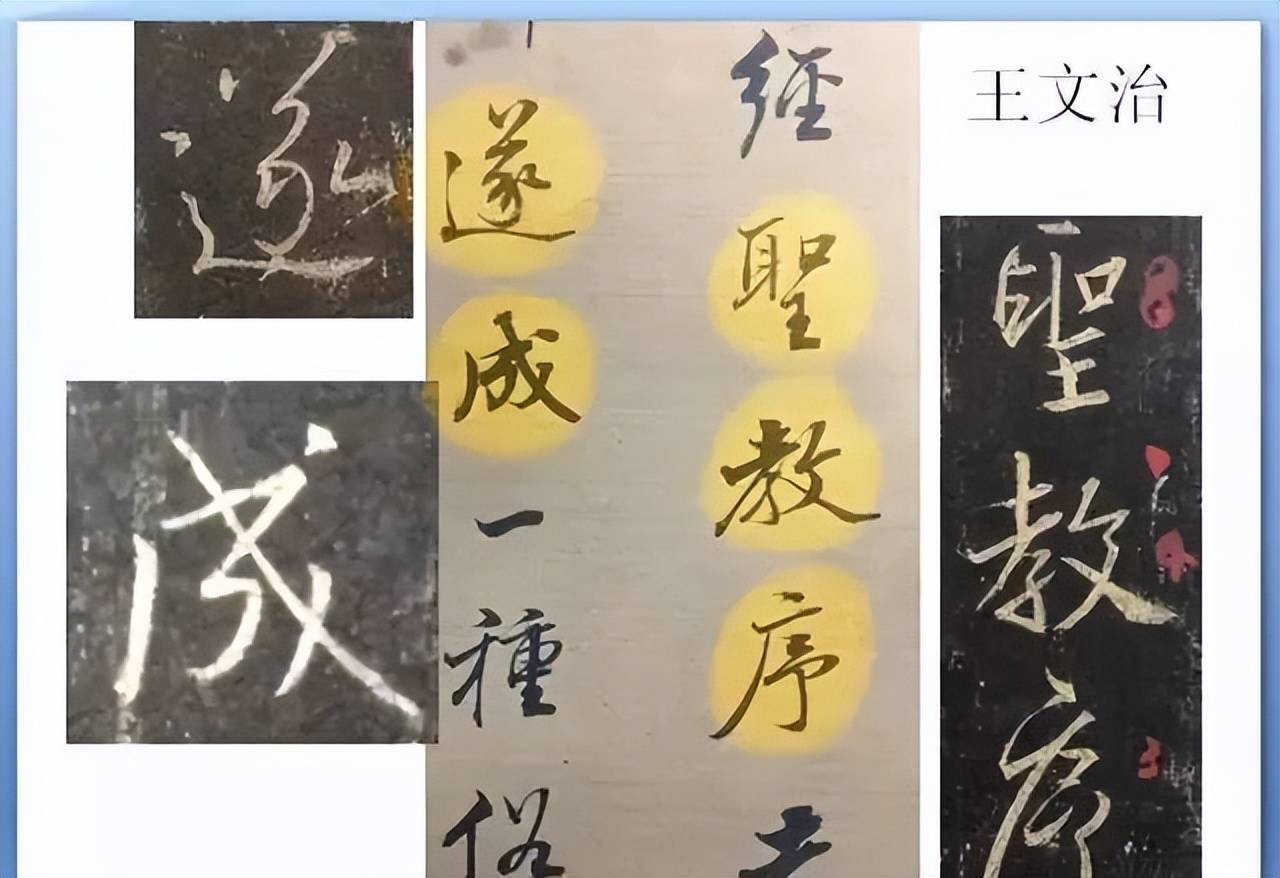 王文治
聖教序
經聖教序
遂成一種俗
遂
成